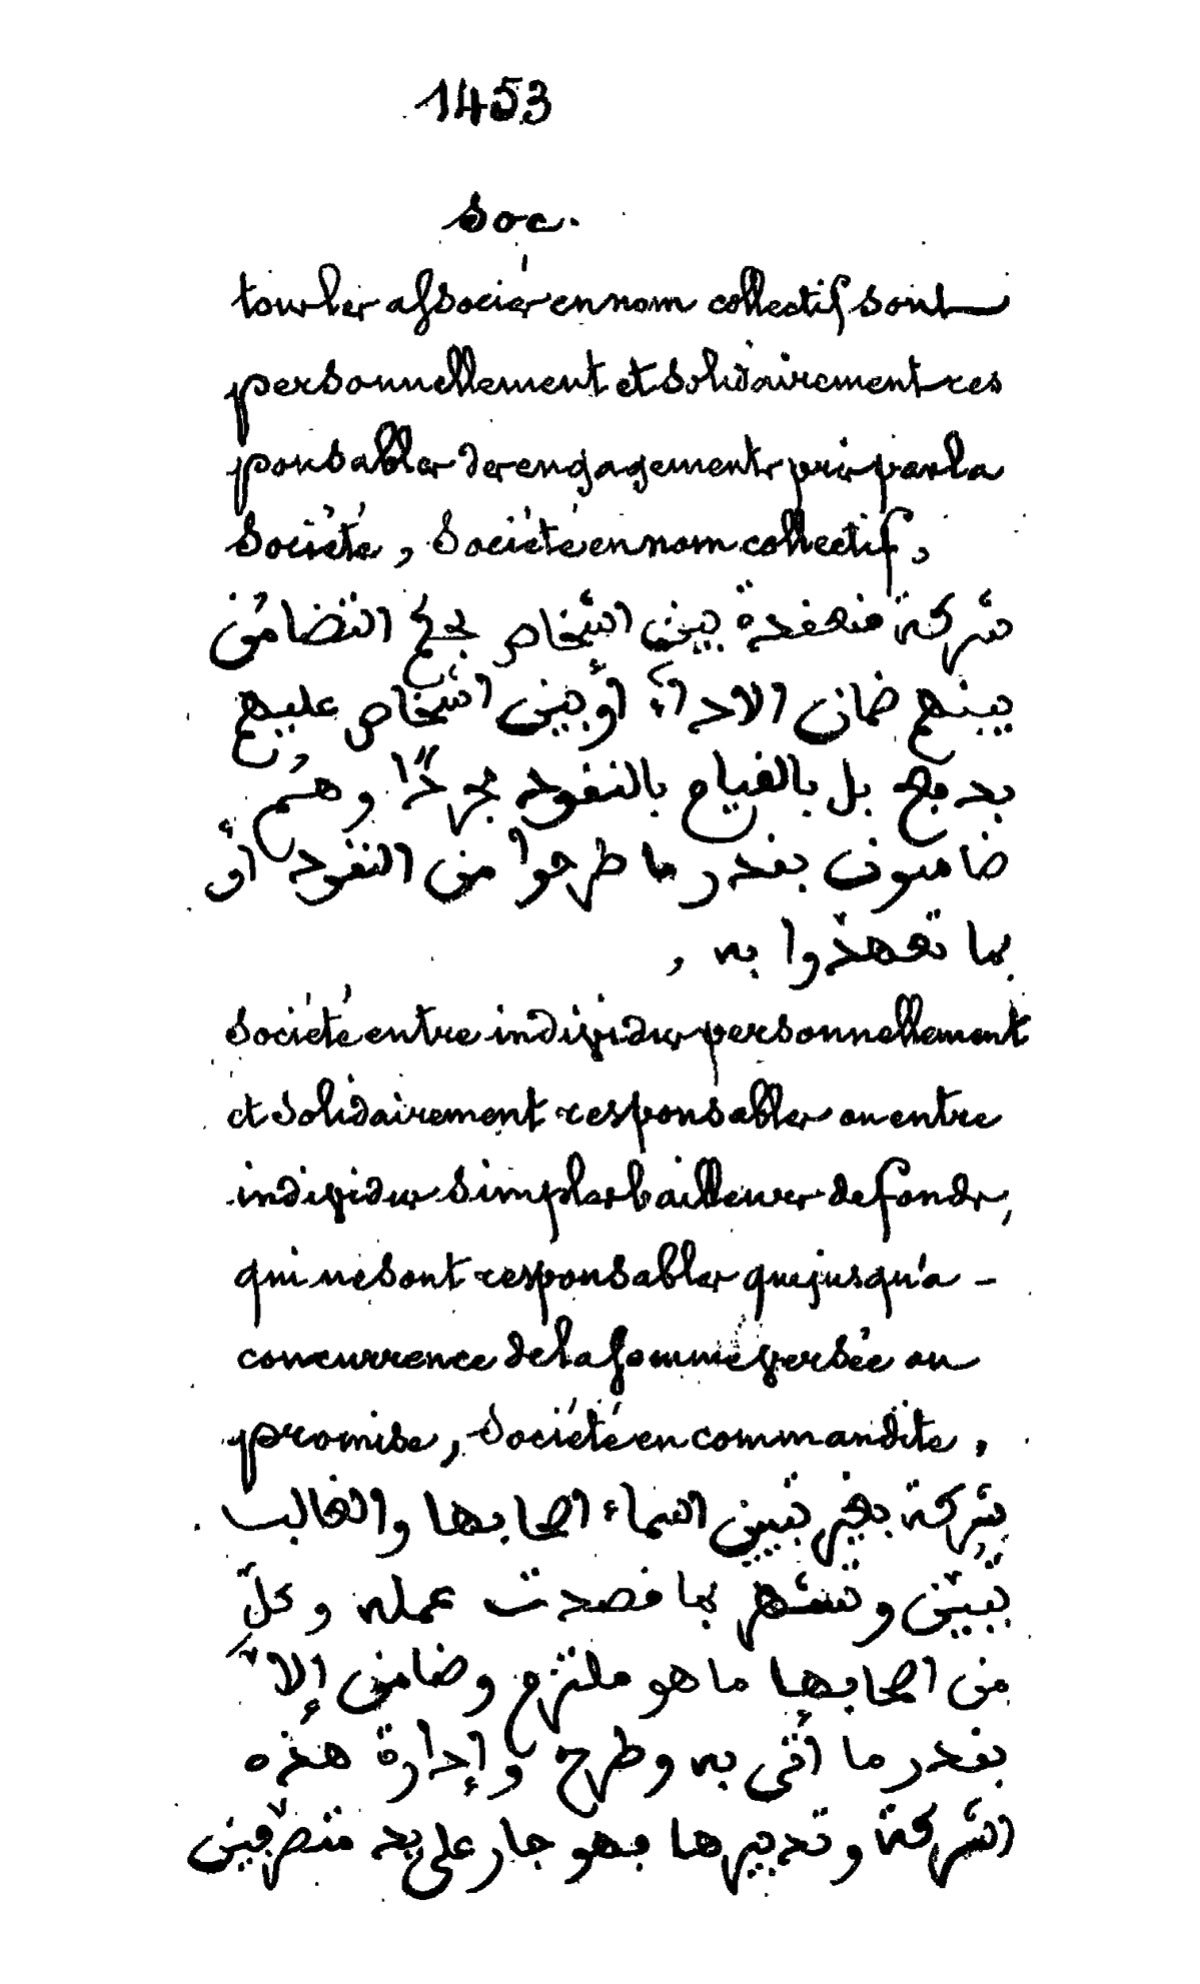 1453
soc.
tous les associés en nom collectif sont
personnellement et solidairement res
ponsables des engagements pris par la
Société, Société en nom collectif,
شركة منعقدة بين اشخاص بجمع التضامن
بينهم ضمان الاداء، أو بين اشخاص عليهم
بدمج بل بالقيام بالنقود مجردًا وهم
ضامنون بقدر ما طرحوا من النقود أو
بما تعهدوا به,
Société entre individus personnellement
et solidairement responsables ou entre
individus simples bailleurs de fonds,
qui ne sont responsables que jusqu'à -
concurrence de la somme versée ou
promise, Société en commandite,
شركة بغير تبيين اسماء اصحابها والغالب
تبيّن وتشهر بما قصدت عمله وكلّ
من اصحابها ما هو ملتزم وضامن إلاّ
بقدر ما أتى به وطرح وإدارة هذه
الشركة وتدبيرها بهو جار على يد متصرّفين